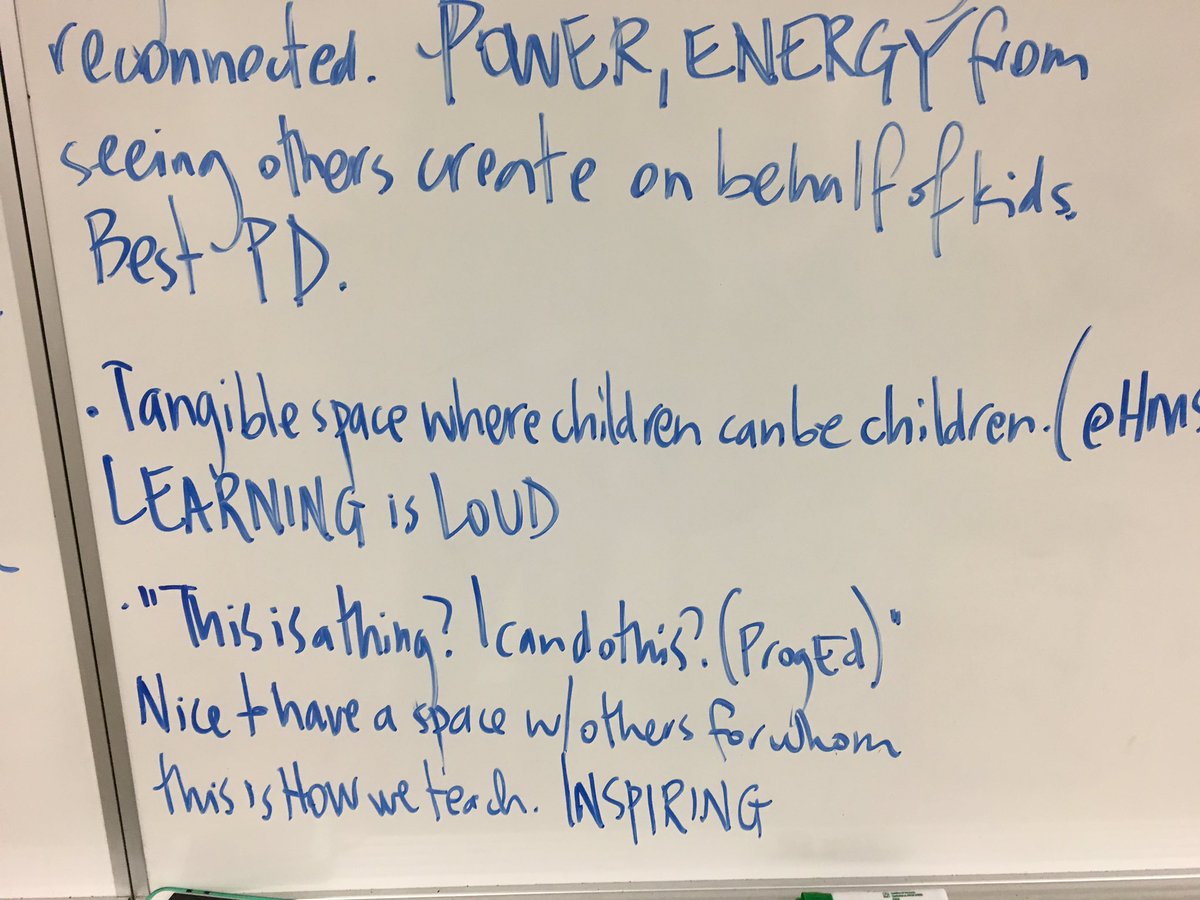 reconnected. POWER, ENERGY from
seeing others create on behalf of kids.
Best PD.
· Tangible space where children can be children. (@HMS
LEARNING is LOUD
· "This is a thing? I can do this? (ProgEd)"
Nice to have a space w/others for whom
this is HOW we teach. INSPIRING